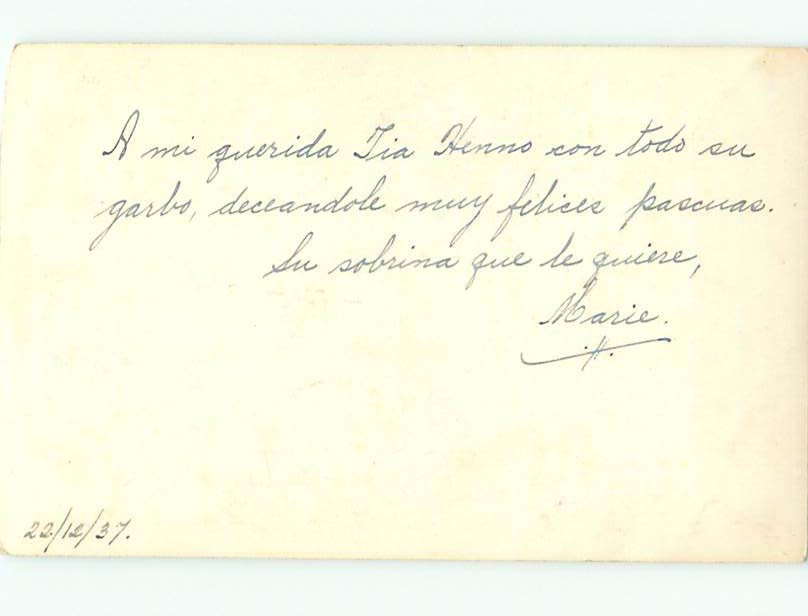 A mi querida Tia Henno con todo su
garbo, deceandole muy felices pascuas.
Su sobrina que le quiere,
Marie.
22/12/37.